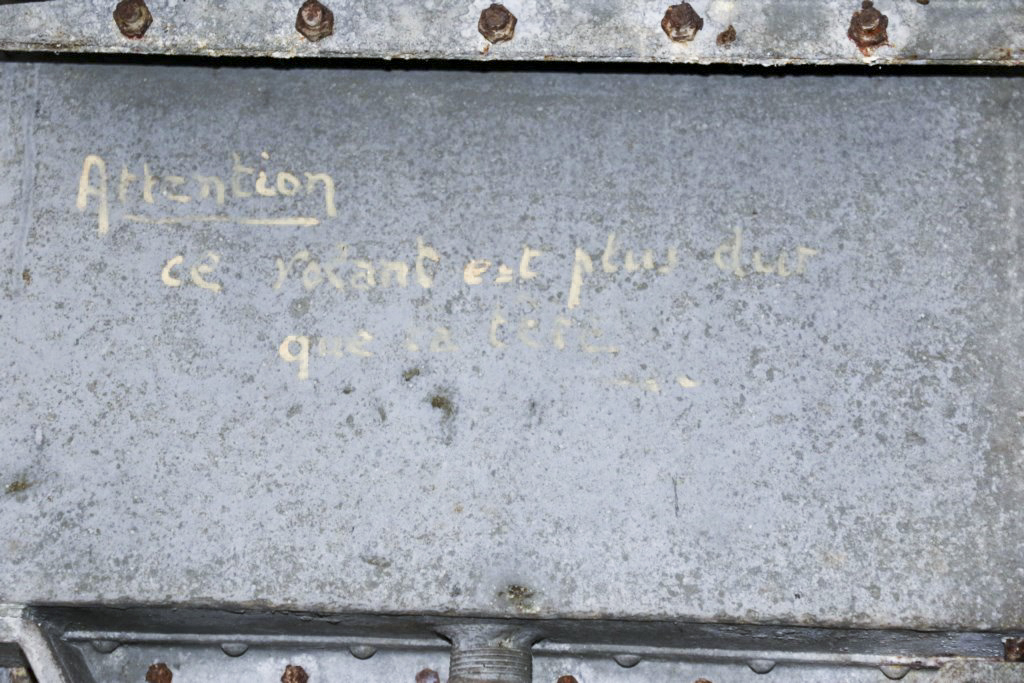 Attention
ce volant est plus dur
que la tête